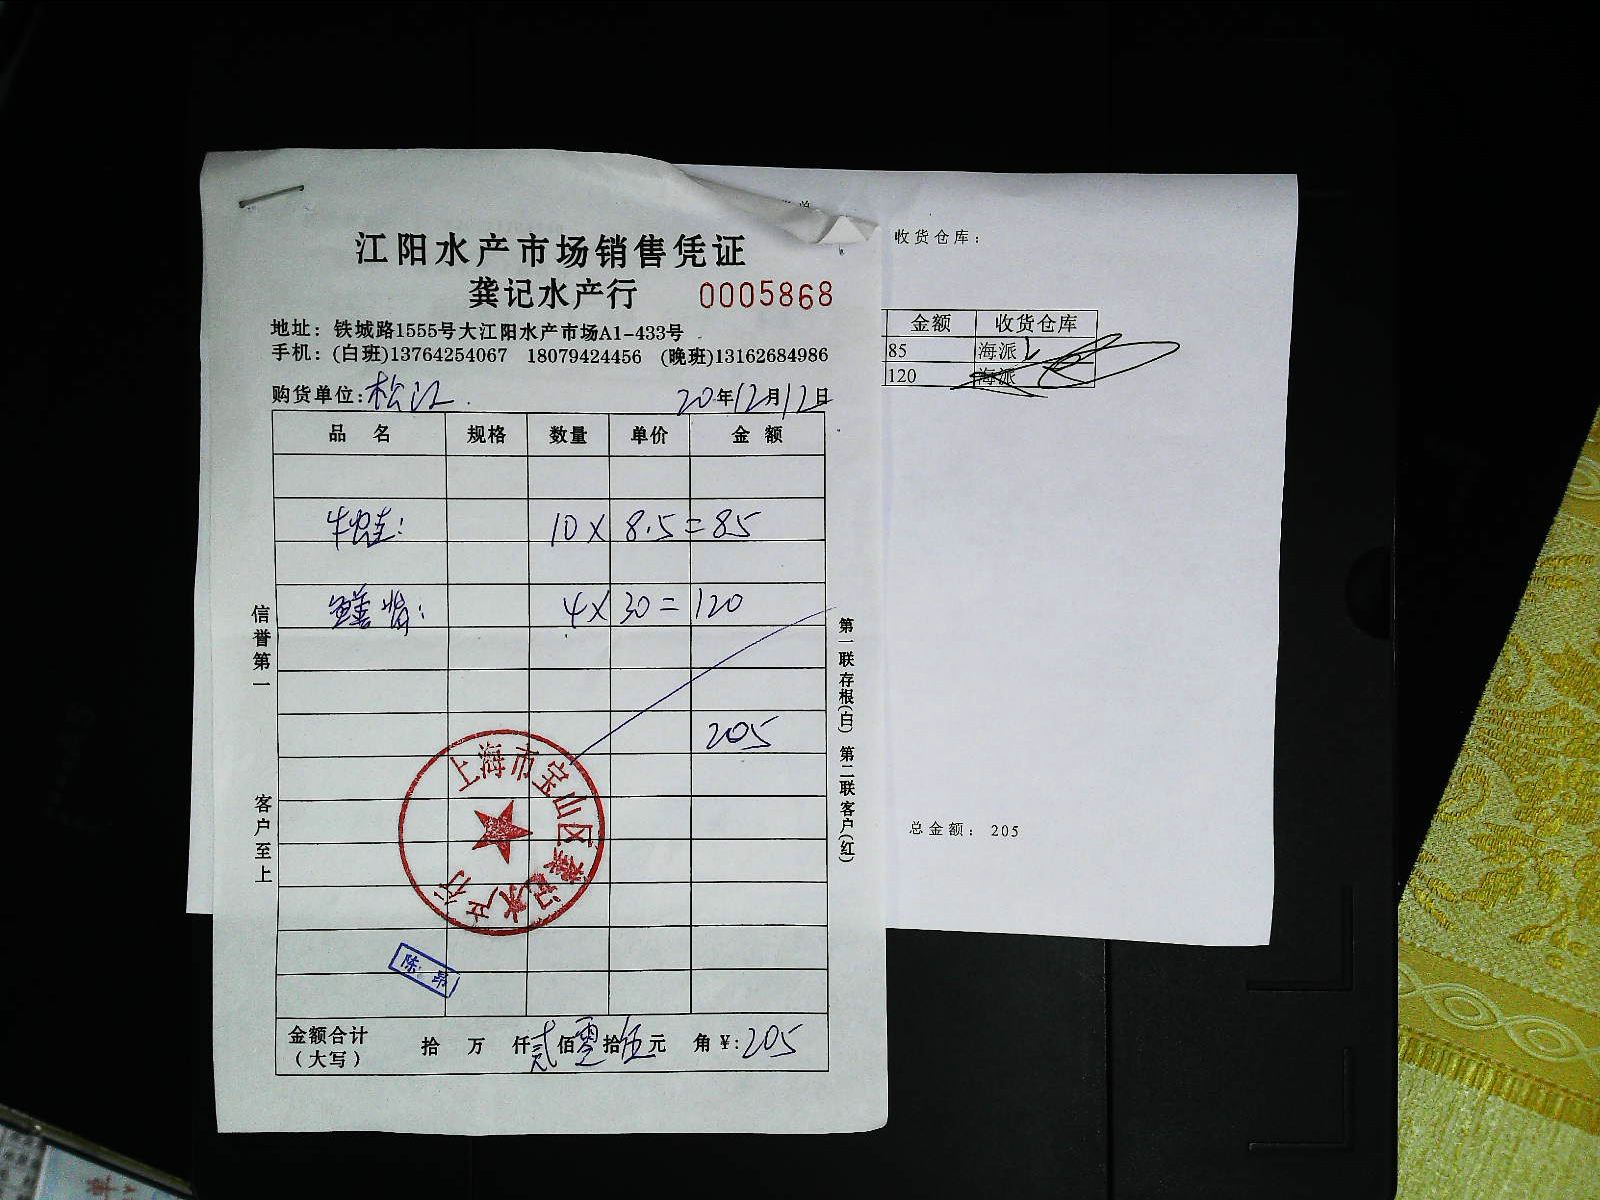 江阳水产市场销售凭证
龚记水产行 0005868
地址：铁城路1555号大江阳水产市场A1-433号
手机：(白班)13764254067 18079424456 (晚班)13162684986
购货单位：松江. 20年12月12日
品 名 规格 数量 单价 金 额
牛蛙： 10 X 8.5=85
鳝 4X 30= 120
205
信誉第一
客户至上
第一联存根(白) 第二联客户(红)
上海市宝山区龚记水产行
陈 昂
金额合计
（大写） 拾 万 仟贰佰零拾伍元 角¥：205
单
收货仓库：
金额 收货仓库
85 海派
120 海派
总金额：205